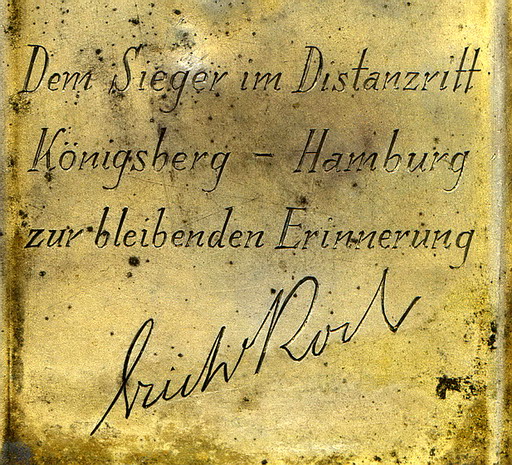 Dem Sieger im Distanzritt
Königsberg – Hamburg
zur bleibenden Erinnerung
Erich Koch